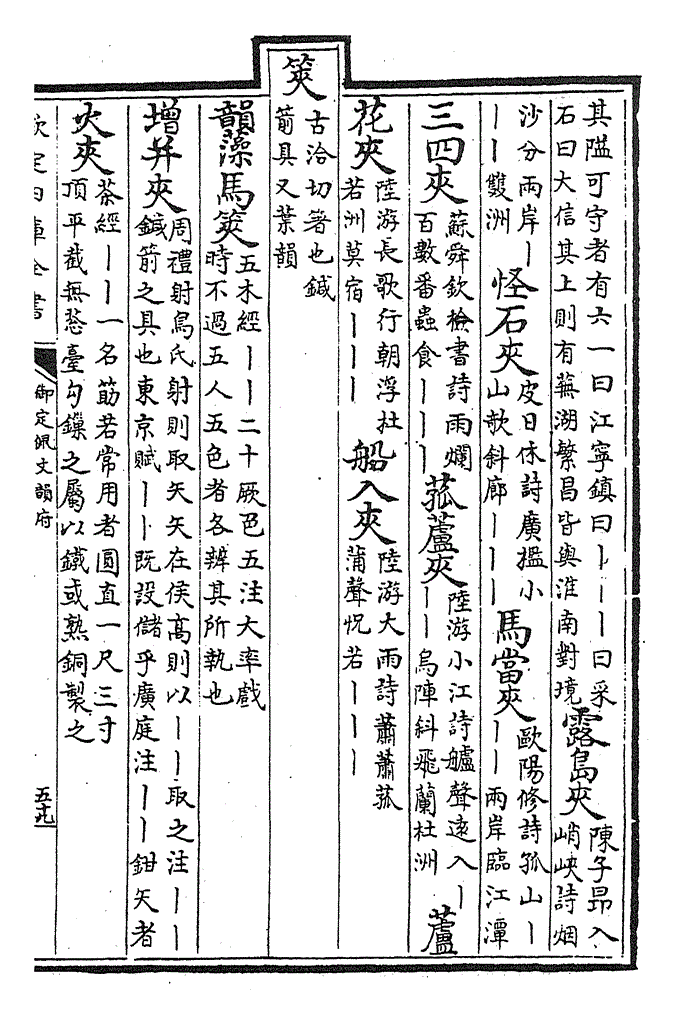 其隘可守者有六一曰江寧鎮曰丨丨丨曰采
石曰大信其上則有蕪湖繁昌皆與淮南對境
露島夾
陳子昂入
峭峽詩烟
沙分兩岸丨
丨丨雙洲
怪石夾
皮日休詩廣檻小
山欹斜廊丨丨丨
馬當夾
歐陽修詩孤山丨
丨丨兩岸臨江潭
三四夾
蘇舜欽檢書詩雨爛
百數番蟲食丨丨丨
菰蘆夾
陸游小江詩艫聲遠入丨
丨丨烏陣斜飛蘭杜洲
蘆
花夾
陸游長歌行朝浮杜
若洲莫宿丨丨丨
船入夾
陸游大雨詩蕭蕭菰
蒲聲怳若丨丨丨
筴
古洽切箸也鍼
箭具又葉韻
韻藻馬筴
五木經丨丨二十厥色五注大率戲
時不過五人五色者各辨其所執也
增并夾
周禮射鳥氏射則取矢矢在侯高則以丨丨取之注丨丨
鍼箭之具也東京賦丨丨既設儲乎廣庭注丨丨鉗矢者
火夾
茶經丨丨一名筯若常用者圓直一尺三寸
頂平截無葱臺勾鏁之屬以鐵或熟銅製之
欽定四庫全書
御定佩文韻府
五十九